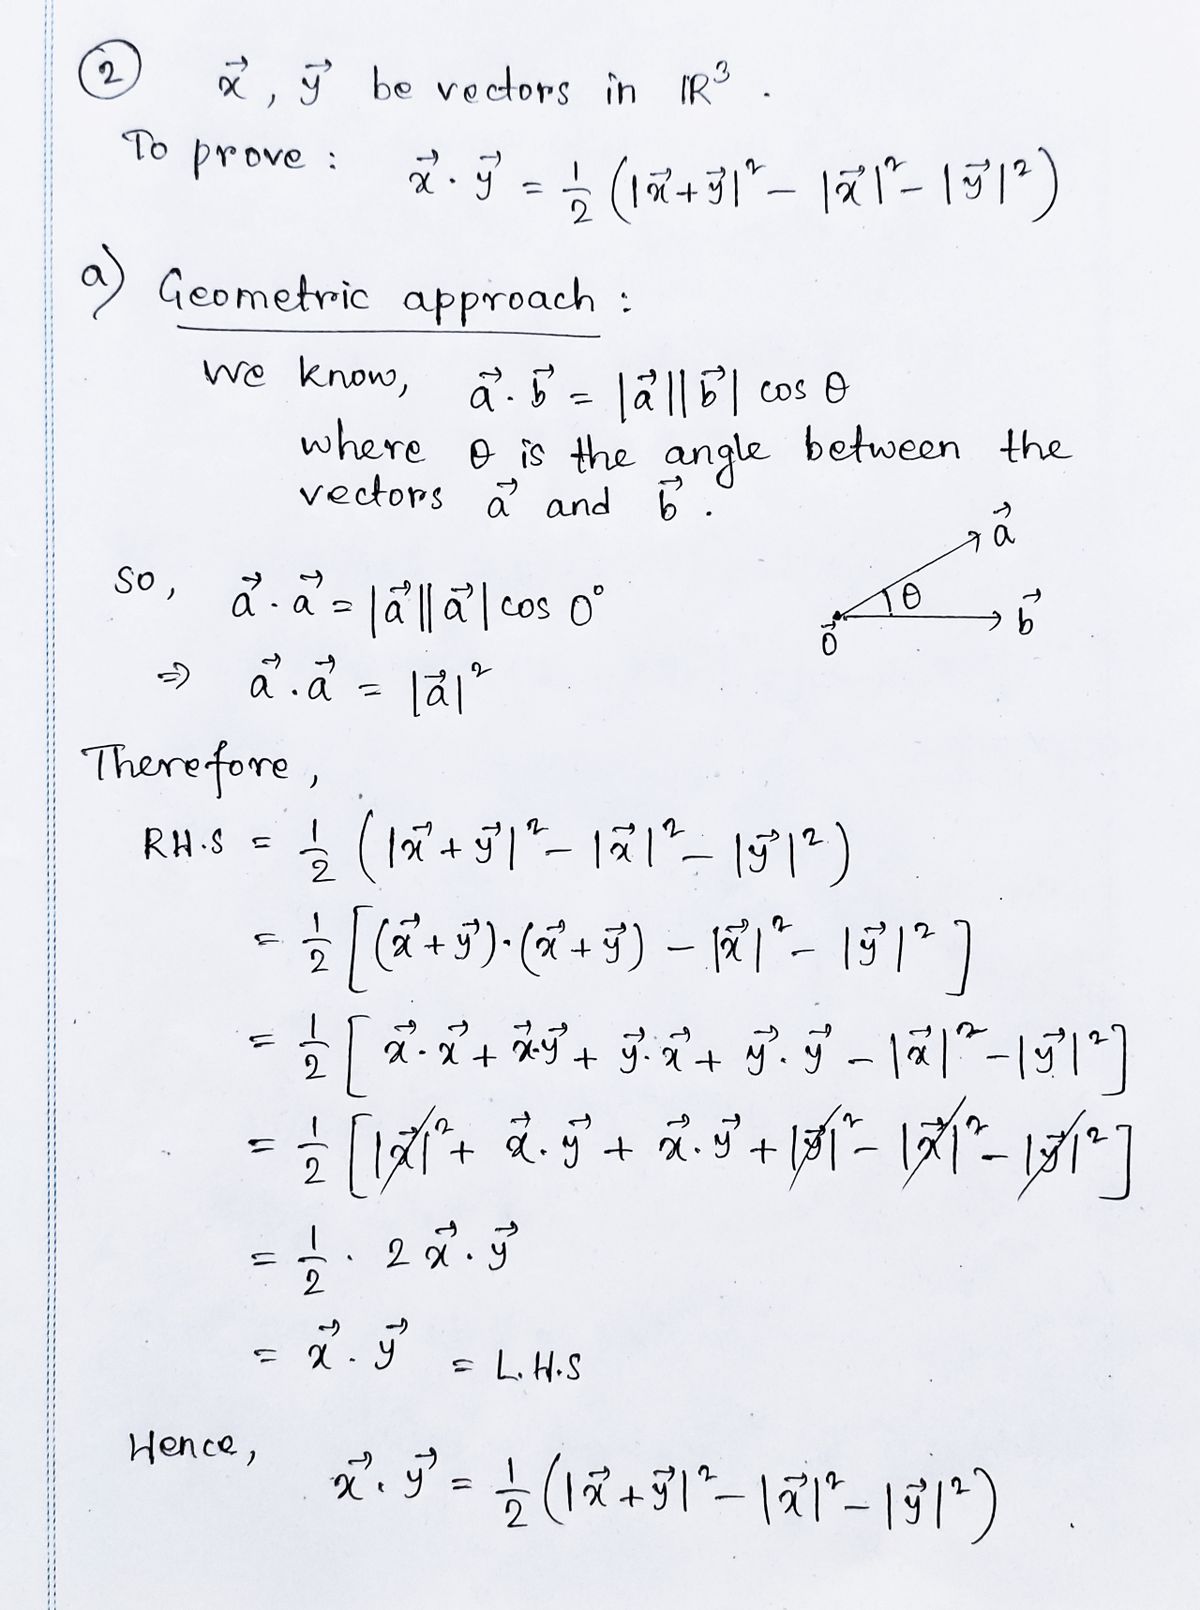 ② x⃗, y⃗ be vectors in ℝ³.
To prove: x⃗·y⃗ = 1/2 (|x⃗+y⃗|² − |x⃗|² − |y⃗|²)
a) Geometric approach:
We know, a⃗·b⃗ = |a⃗||b⃗| cos θ
where θ is the angle between the
vectors a⃗ and b⃗.
a⃗
So, a⃗·a⃗ = |a⃗||a⃗| cos 0°
θ
b⃗
0⃗
⇒ a⃗·a⃗ = |a⃗|²
Therefore,
R.H.S = 1/2 (|x⃗+y⃗|² − |x⃗|² − |y⃗|²)
= 1/2 [(x⃗+y⃗)·(x⃗+y⃗) − |x⃗|² − |y⃗|²]
= 1/2 [x⃗·x⃗ + x⃗·y⃗ + y⃗·x⃗ + y⃗·y⃗ − |x⃗|² − |y⃗|²]
= 1/2 [|x⃗|² + x⃗·y⃗ + x⃗·y⃗ + |y⃗|² − |x⃗|² − |y⃗|²]
= 1/2 · 2 x⃗·y⃗
= x⃗·y⃗ = L.H.S
Hence,
x⃗·y⃗ = 1/2 (|x⃗+y⃗|² − |x⃗|² − |y⃗|²)